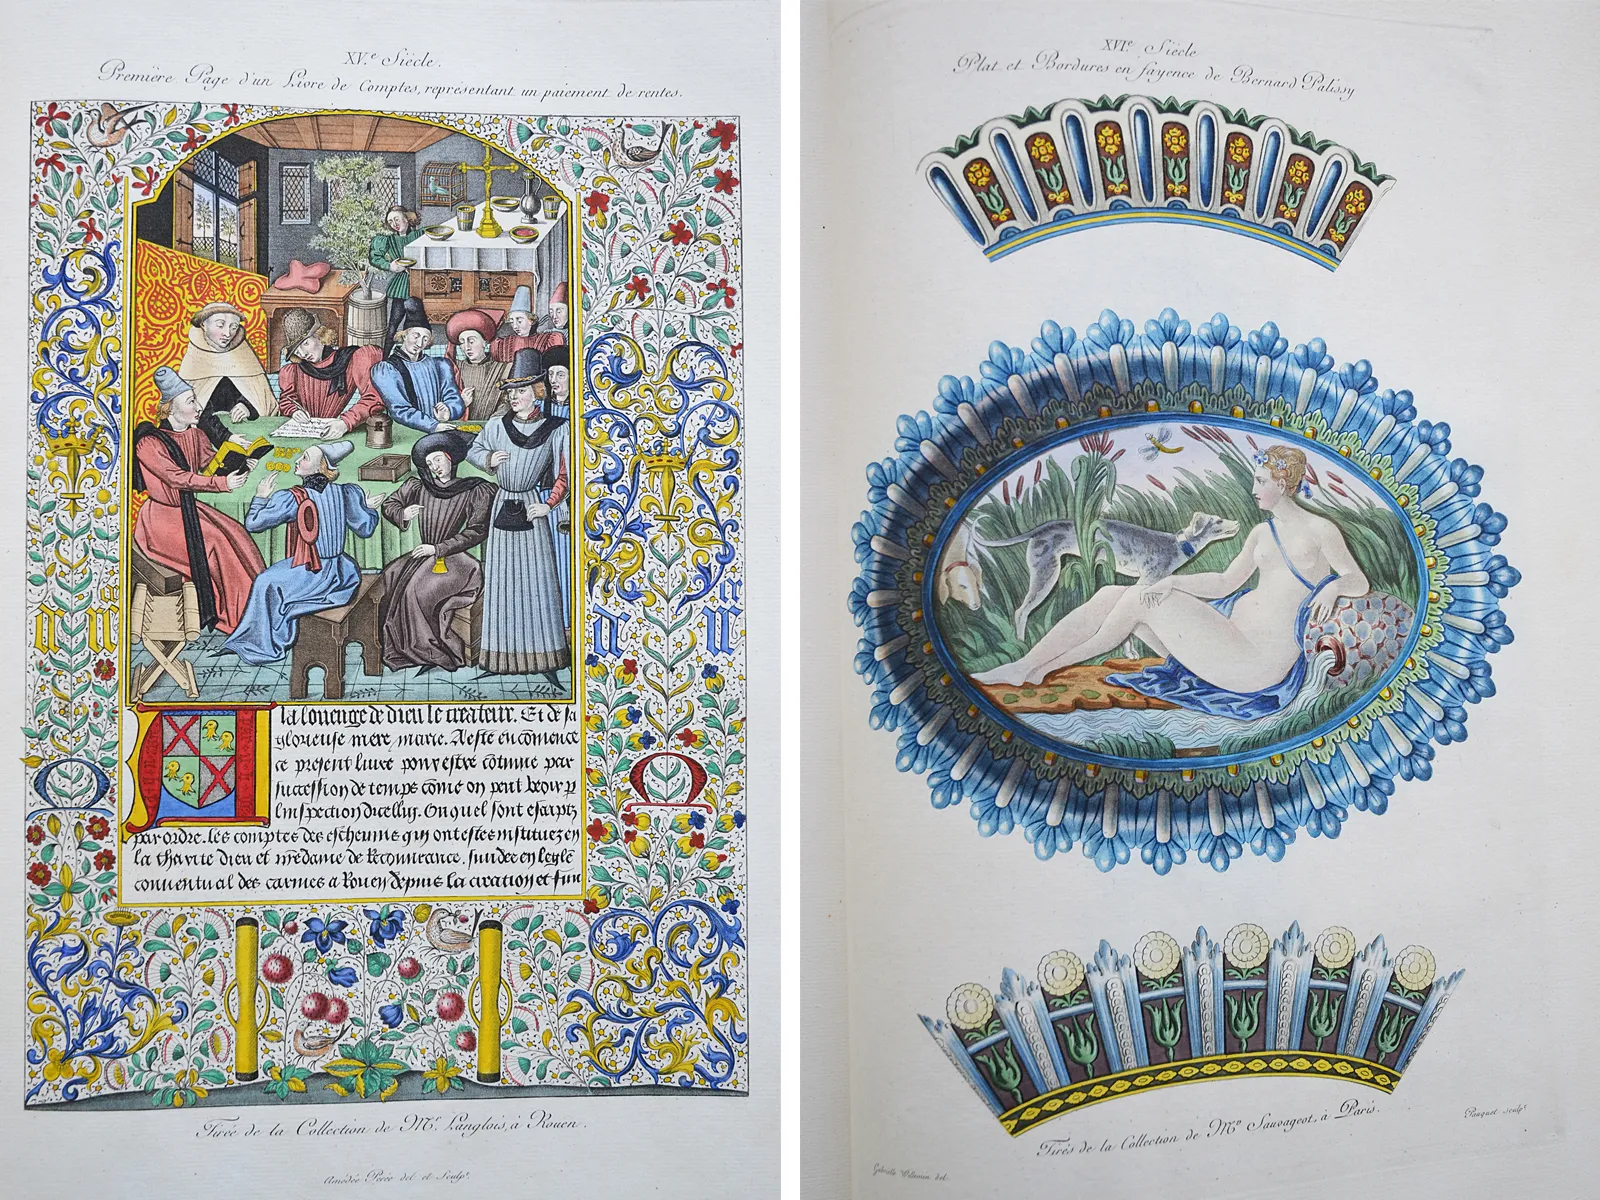 XV.e Siècle.
Première Page d'un Livre de Comptes, représentant un paiement de rentes.
la louenge de dieu le createur. Et de sa
glorieuse mere, marie. A este encōmence
ce present liure pour estre cōtinue par
succession de temps cōme on peut veoir p
linspection dicelluy. Onquel sont escriptz
par ordre. les comptes des escheuins qui ont estes instituez en
la charite dieu et nr̄edame de Recouurance. fundee en leglē
conuentual des carmes a Rouen depuis la creation et fun
Tirée de la Collection de Mr. Langlois, à Rouen.
Amédée Pérée del et Sculpt.
XVI.e Siècle
Plat et Bordures en fayence de Bernard Palissy
Tirés de la Collection de Mr Sauvageot, à Paris.
Gabrielle Willemin del.
Pauquet sculpt.